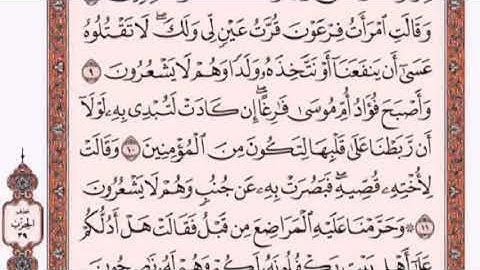 وَقَالَتِ ٱمْرَأَتُ فِرْعَوْنَ قُرَّتُ عَيْنٍ لِّى وَلَكَ ۖ لَا تَقْتُلُوهُ
عَسَىٰٓ أَن يَنفَعَنَآ أَوْ نَتَّخِذَهُۥ وَلَدًا وَهُمْ لَا يَشْعُرُونَ ٩
وَأَصْبَحَ فُؤَادُ أُمِّ مُوسَىٰ فَٰرِغًا ۖ إِن كَادَتْ لَتُبْدِى بِهِۦ لَوْلَآ
أَن رَّبَطْنَا عَلَىٰ قَلْبِهَا لِتَكُونَ مِنَ ٱلْمُؤْمِنِينَ ١٠ وَقَالَتْ
لِأُخْتِهِۦ قُصِّيهِ ۖ فَبَصُرَتْ بِهِۦ عَن جُنُبٍ وَهُمْ لَا يَشْعُرُونَ
١١ ۞ وَحَرَّمْنَا عَلَيْهِ ٱلْمَرَاضِعَ مِن قَبْلُ فَقَالَتْ هَلْ أَدُلُّكُمْ
عَلَىٰٓ أَهْلِ بَيْتٍ يَكْفُلُونَهُۥ لَكُمْ وَهُمْ لَهُۥ نَٰصِحُونَ
نصف
الحزب
٣٩